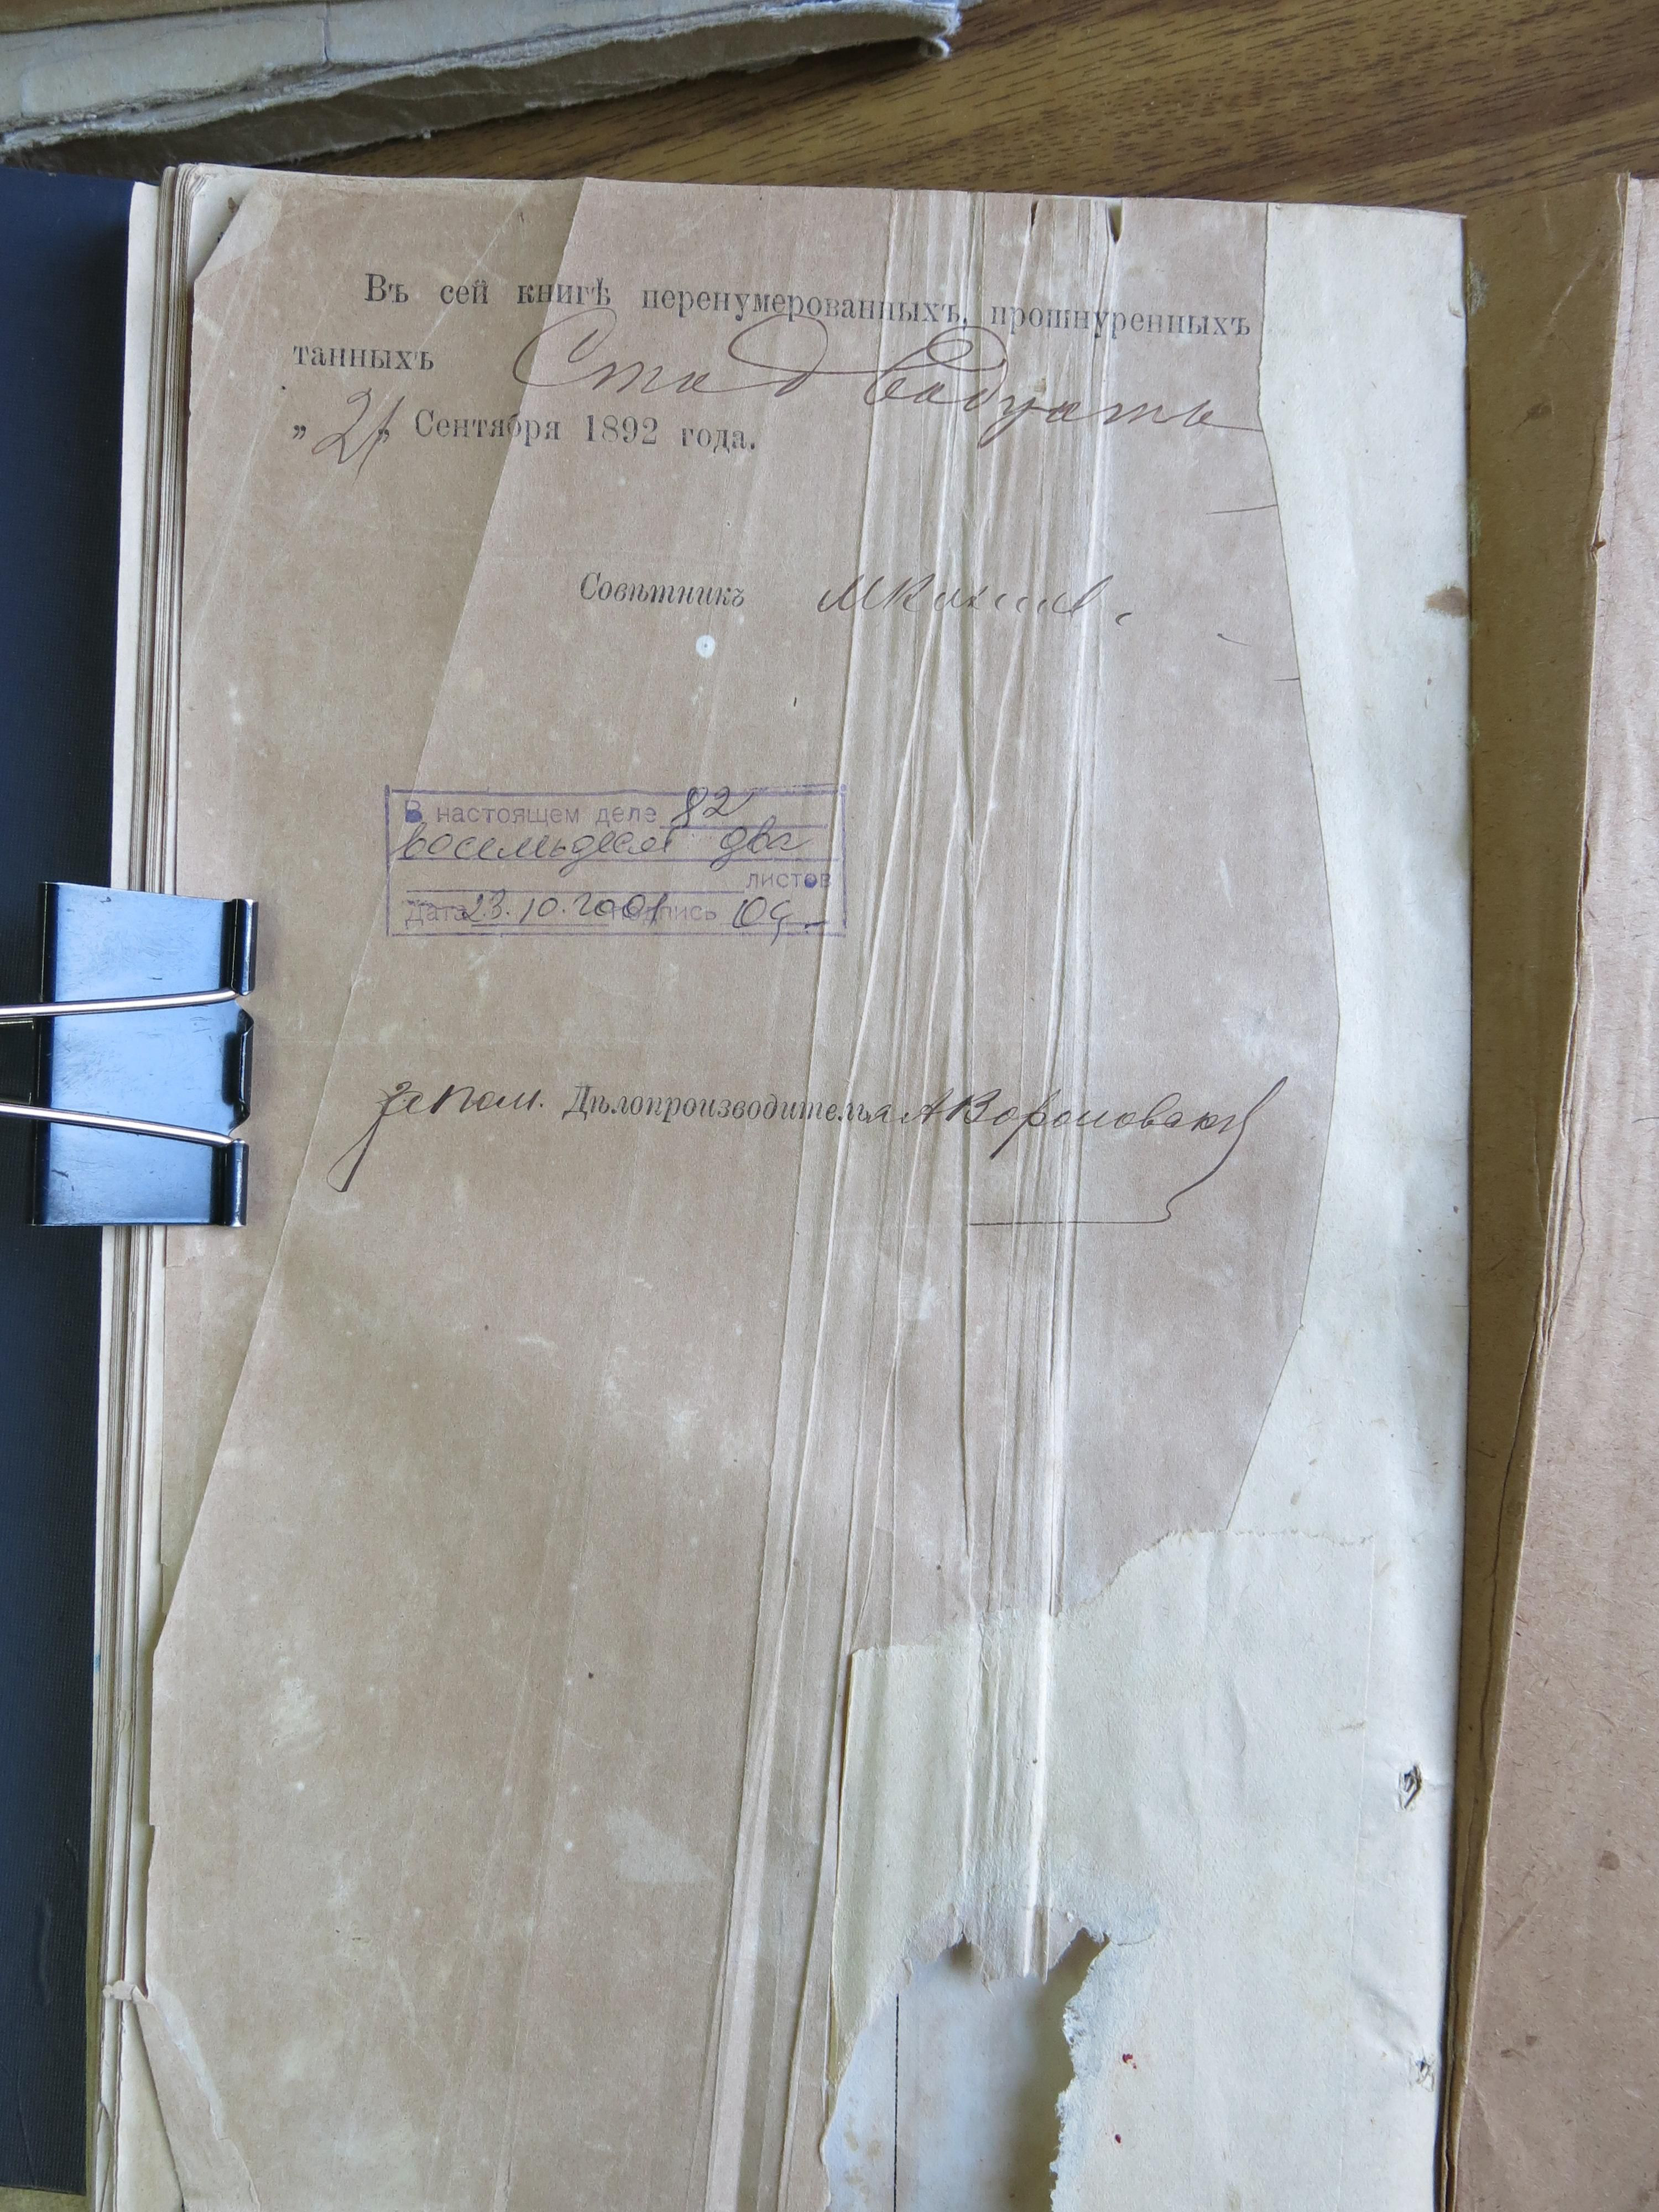 Въ сей книгѣ перенумерованныхъ, прошнуренныхъ
танныхъ Сто двадцать
„21„ Сентября 1892 года.
Совѣтникъ
В настоящем деле 82
восемьдесят два
листов
Дата 23.10.2001 подпись
За Пом. Дѣлопроизводителя А Вороновскій